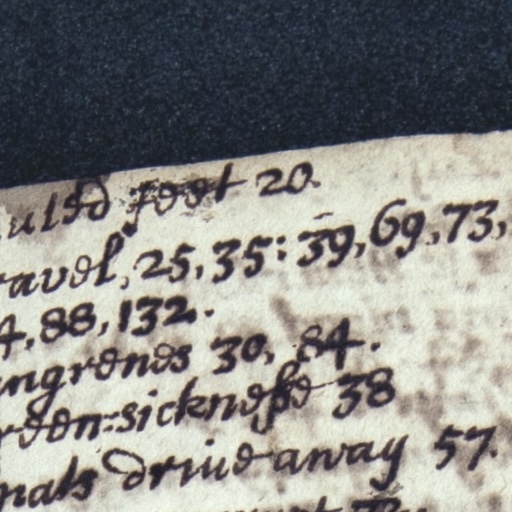 uled feet 20.
ravel, 25, 35: 39, 69, 73,
4, 88, 132.
ngrenes 30, 84.
reen=sicknesse 38
nats driue away 57.